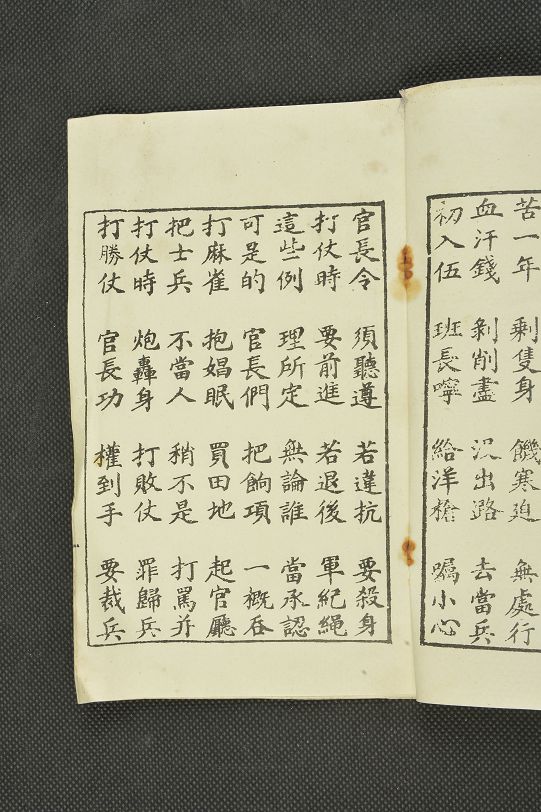 苦一年 剩隻身 饑寒迫 無處行
血汗錢 剝削盡 沒出路 去當兵
初入伍 班長嚀 給洋槍 囑小心
官長令 須聽遵 若違抗 要殺身
打仗時 要前進 若退後 軍紀繩
這些例 理所定 無論誰 當承認
可是的 官長們 把餉項 一概吞
打麻雀 抱娼眠 買田地 起官廳
把士兵 不當人 稍不是 打罵並
打仗時 炮轟身 打敗仗 罪歸兵
打勝仗 官長功 權到手 要裁兵